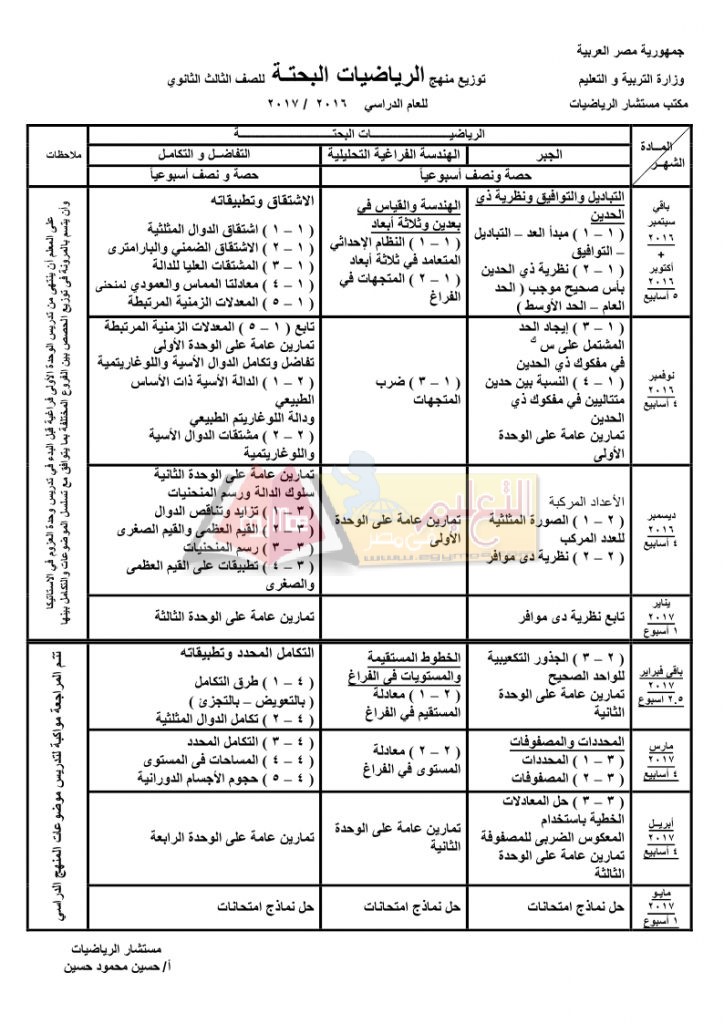 جمهورية مصر العربية
وزارة التربية و التعليم
مكتب مستشار الرياضيات
توزيع منهج الرياضيات البحتـة للصف الثالث الثانوي
للعام الدراسي ٢٠١٦ / ٢٠١٧
المــادة
الشهـر
الرياضيـــات البحتـــة
ملاحظات
الجبر
الهندسة الفراغية التحليلية
التفاضـل و التكامل
حصة ونصف أسبوعياً
حصة و نصف أسبوعياً
باقي
سبتمبر
٢٠١٦
+
أكتوبر
٢٠١٦
٥ أسابيع
التباديل والتوافيق ونظرية ذي
الحدين
( ١ – ١ ) مبدأ العد – التباديل
– التوافيق
( ١ – ٢ ) نظرية ذي الحدين
بأس صحيح موجب ( الحد
العام – الحد الأوسط )
الهندسة والقياس في
بعدين وثلاثة أبعاد
( ١ – ١ ) النظام الإحداثي
المتعامد في ثلاثة أبعاد
( ١ – ٢ ) المتجهات في
الفراغ
الاشتقاق وتطبيقاته
( ١ – ١ ) اشتقاق الدوال المثلثية
( ١ – ٢ ) الاشتقاق الضمني والبارامترى
( ١ – ٣ ) المشتقات العليا للدالة
( ١ – ٤ ) معادلتا المماس والعمودي لمنحنى
( ١ – ٥ ) المعدلات الزمنية المرتبطة
على المعلم أن ينتهى من تدريس الوحدة الأولى فراغية قبل البدء في تدريس وحدة العزوم في الاستاتيكا
وأن يتسم بالمرونة في توزيع الحصص بين الفروع المختلفة بما يتوافق مع تسلسل الموضوعات والتكامل بينها
نوفمبر
٢٠١٦
٤ أسابيع
( ١ – ٣ ) إيجاد الحد
المشتمل على س ك
في مفكوك ذي الحدين
( ١ – ٤ ) النسبة بين حدين
متتاليين في مفكوك ذي
الحدين
تمارين عامة على الوحدة
الأولى
( ١ – ٣ ) ضرب
المتجهات
تابع ( ١ – ٥ ) المعدلات الزمنية المرتبطة
تمارين عامة على الوحدة الأولى
تفاضل وتكامل الدوال الأسية واللوغاريتمية
( ٢ – ١ ) الدالة الأسية ذات الأساس
الطبيعي
ودالة اللوغاريتم الطبيعي
( ٢ – ٢ ) مشتقات الدوال الأسية
واللوغاريتمية
ديسمبر
٢٠١٦
٤ أسابيع
الأعداد المركبة
( ٢ – ١ ) الصورة المثلثية
للعدد المركب
( ٢ – ٢ ) نظرية دى موافر
تمارين عامة على الوحدة
الأولى
تمارين عامة على الوحدة الثانية
سلوك الدالة ورسم المنحنيات
( ٣ – ١ ) تزايد وتناقص الدوال
( ٣ – ٢ ) القيم العظمى والقيم الصغرى
( ٣ – ٣ ) رسم المنحنيات
( ٣ – ٤ ) تطبيقات على القيم العظمى
والصغرى
يناير
٢٠١٧
١ أسبوع
تابع نظرية دى موافر
تمارين عامة على الوحدة الثالثة
باقى فبراير
٢٠١٧
٢.٥ اسبوع
( ٢ – ٣ ) الجذور التكعيبية
للواحد الصحيح
تمارين عامة على الوحدة
الثانية
الخطوط المستقيمة
والمستويات في الفراغ
( ٢ – ١ ) معادلة
المستقيم في الفراغ
التكامل المحدد وتطبيقاته
( ٤ – ١ ) طرق التكامل
( بالتعويض – بالتجزئ )
( ٤ – ٢ ) تكامل الدوال المثلثية
تتم المراجعة مواكبة لتدريس موضوعات المنهج الدراسي
مارس
٢٠١٧
٤ أسابيع
المحددات والمصفوفات
( ٣ – ١ ) المحددات
( ٣ – ٢ ) المصفوفات
( ٢ – ٢ ) معادلة
المستوى في الفراغ
( ٤ – ٣ ) التكامل المحدد
( ٤ – ٤ ) المساحات فى المستوى
( ٤ – ٥ ) حجوم الأجسام الدورانية
أبريـل
٢٠١٧
٤ أسابيع
( ٣ – ٣ ) حل المعادلات
الخطية باستخدام
المعكوس الضربى للمصفوفة
تمارين عامة على الوحدة
الثالثة
تمارين عامة على الوحدة
الثانية
تمارين عامة على الوحدة الرابعة
مايـو
٢٠١٧
١ أسبوع
حل نماذج امتحانات
حل نماذج امتحانات
حل نماذج امتحانات
مستشار الرياضيات
أ/ حسين محمود حسين